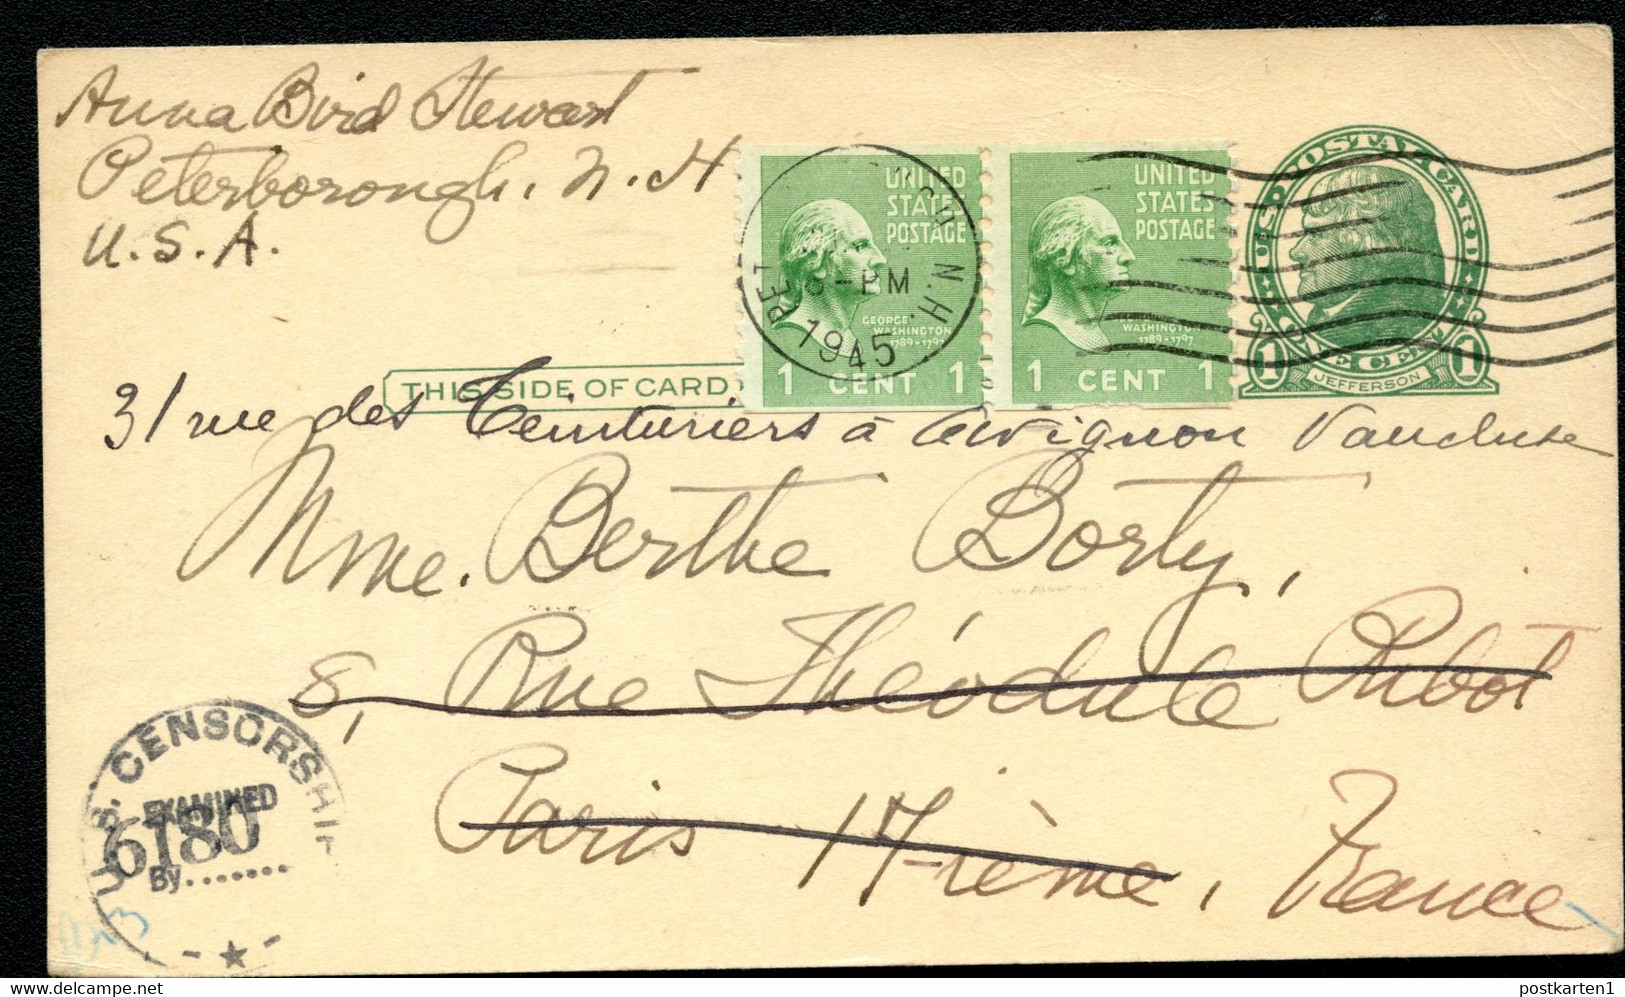 Anna Bird Stewart
Peterborough, N.H
U.S.A.
UNITED
STATES
POSTAGE
GEORGE
WASHINGTON
1789-1797
1 CENT 1
UNITED
STATES
POSTAGE
WASHINGTON
1789-1797
1 CENT 1
8-PM
1945
N.H.
U.S. POSTAL CARD
1 ONE CENT 1
JEFFERSON
THIS SIDE OF CARD
31 rue des Teinturiers à Avignon Vaucluse
Mme. Berthe Borly,
8, Rue Théodule Ribot
Paris 17-ième, France
U.S. CENSORSHIP
EXAMINED
6180
By.......
postkarten1